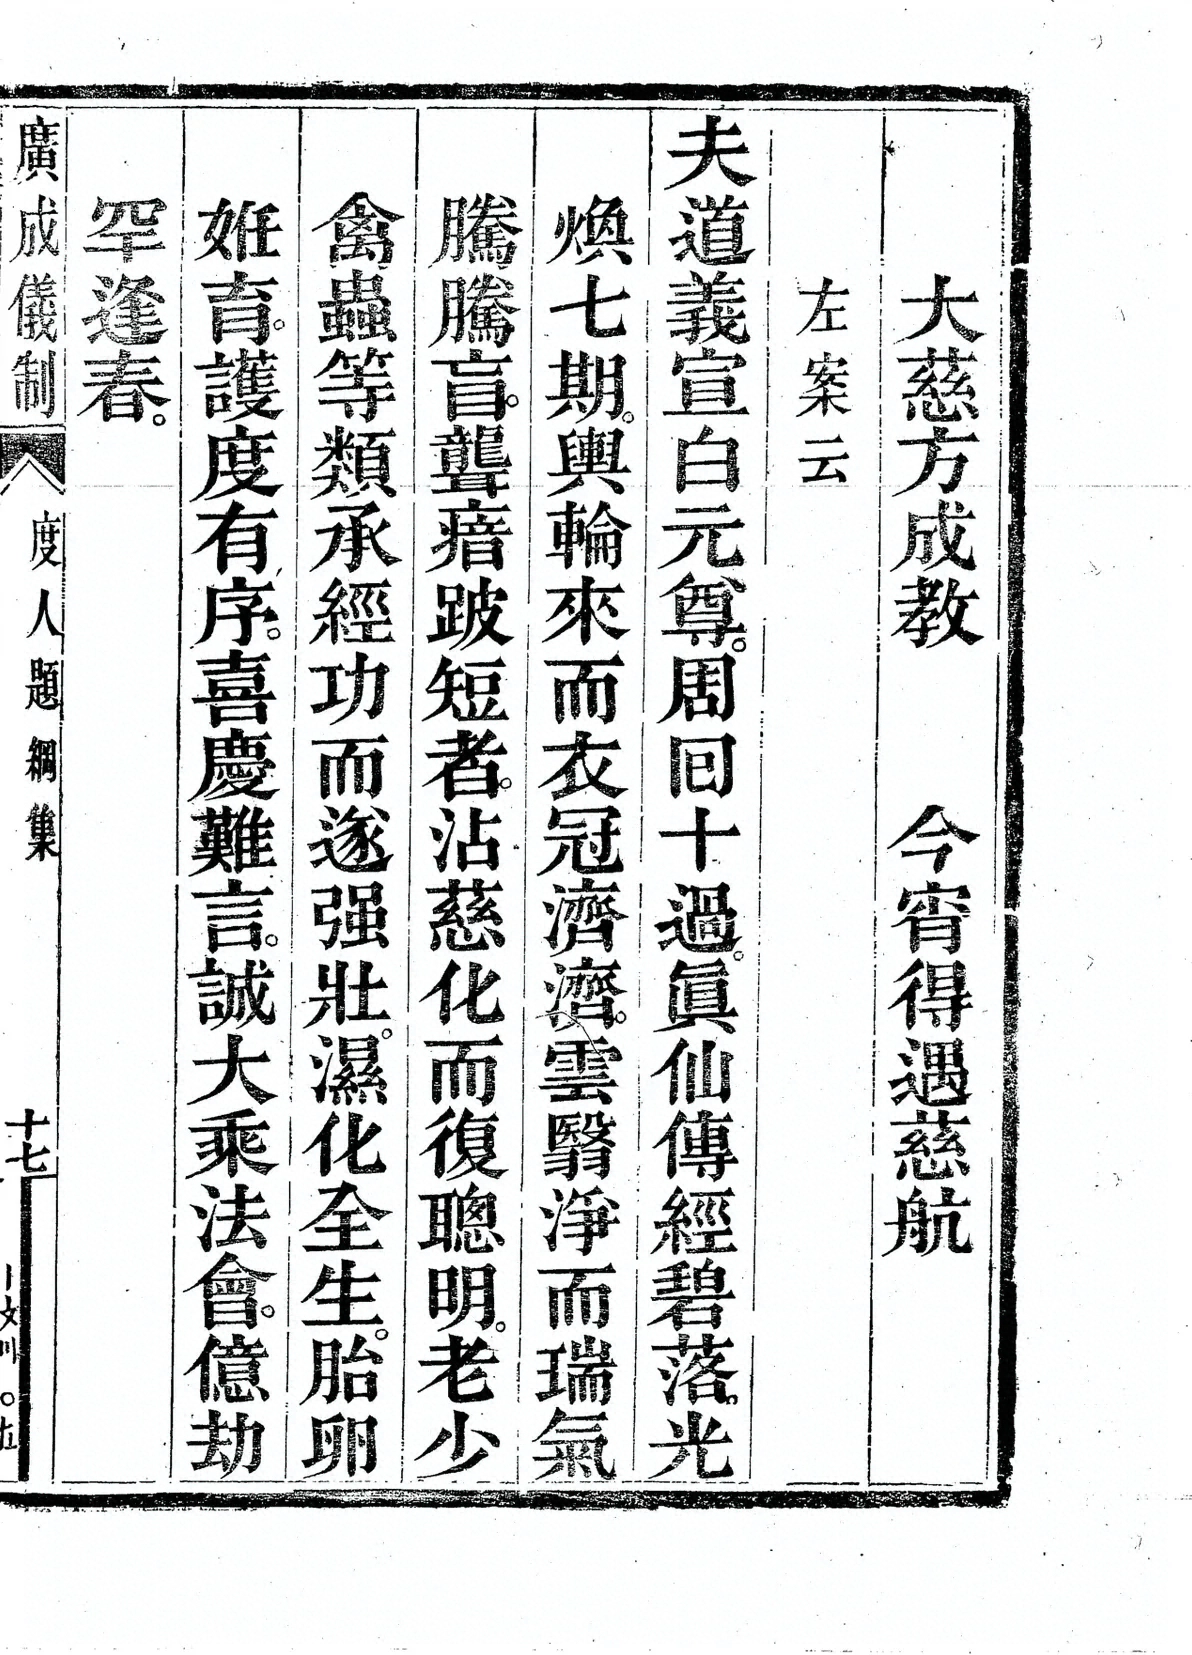 大慈方成教　　今宵得遇慈航
左案云
夫道義宣白元尊。周回十過。眞仙傳經碧落。光
煥七期。輿輪來而衣冠濟濟。雲翳淨而瑞氣
騰騰。盲聾瘖跛短者。沾慈化而復聰明。老少
禽蟲等類承經功而遂强壯。濕化全生。胎卵
姙育。護度有序。喜慶難言。誠大乘法會。億劫
罕逢春。
廣成儀制
度人題綱集
十七